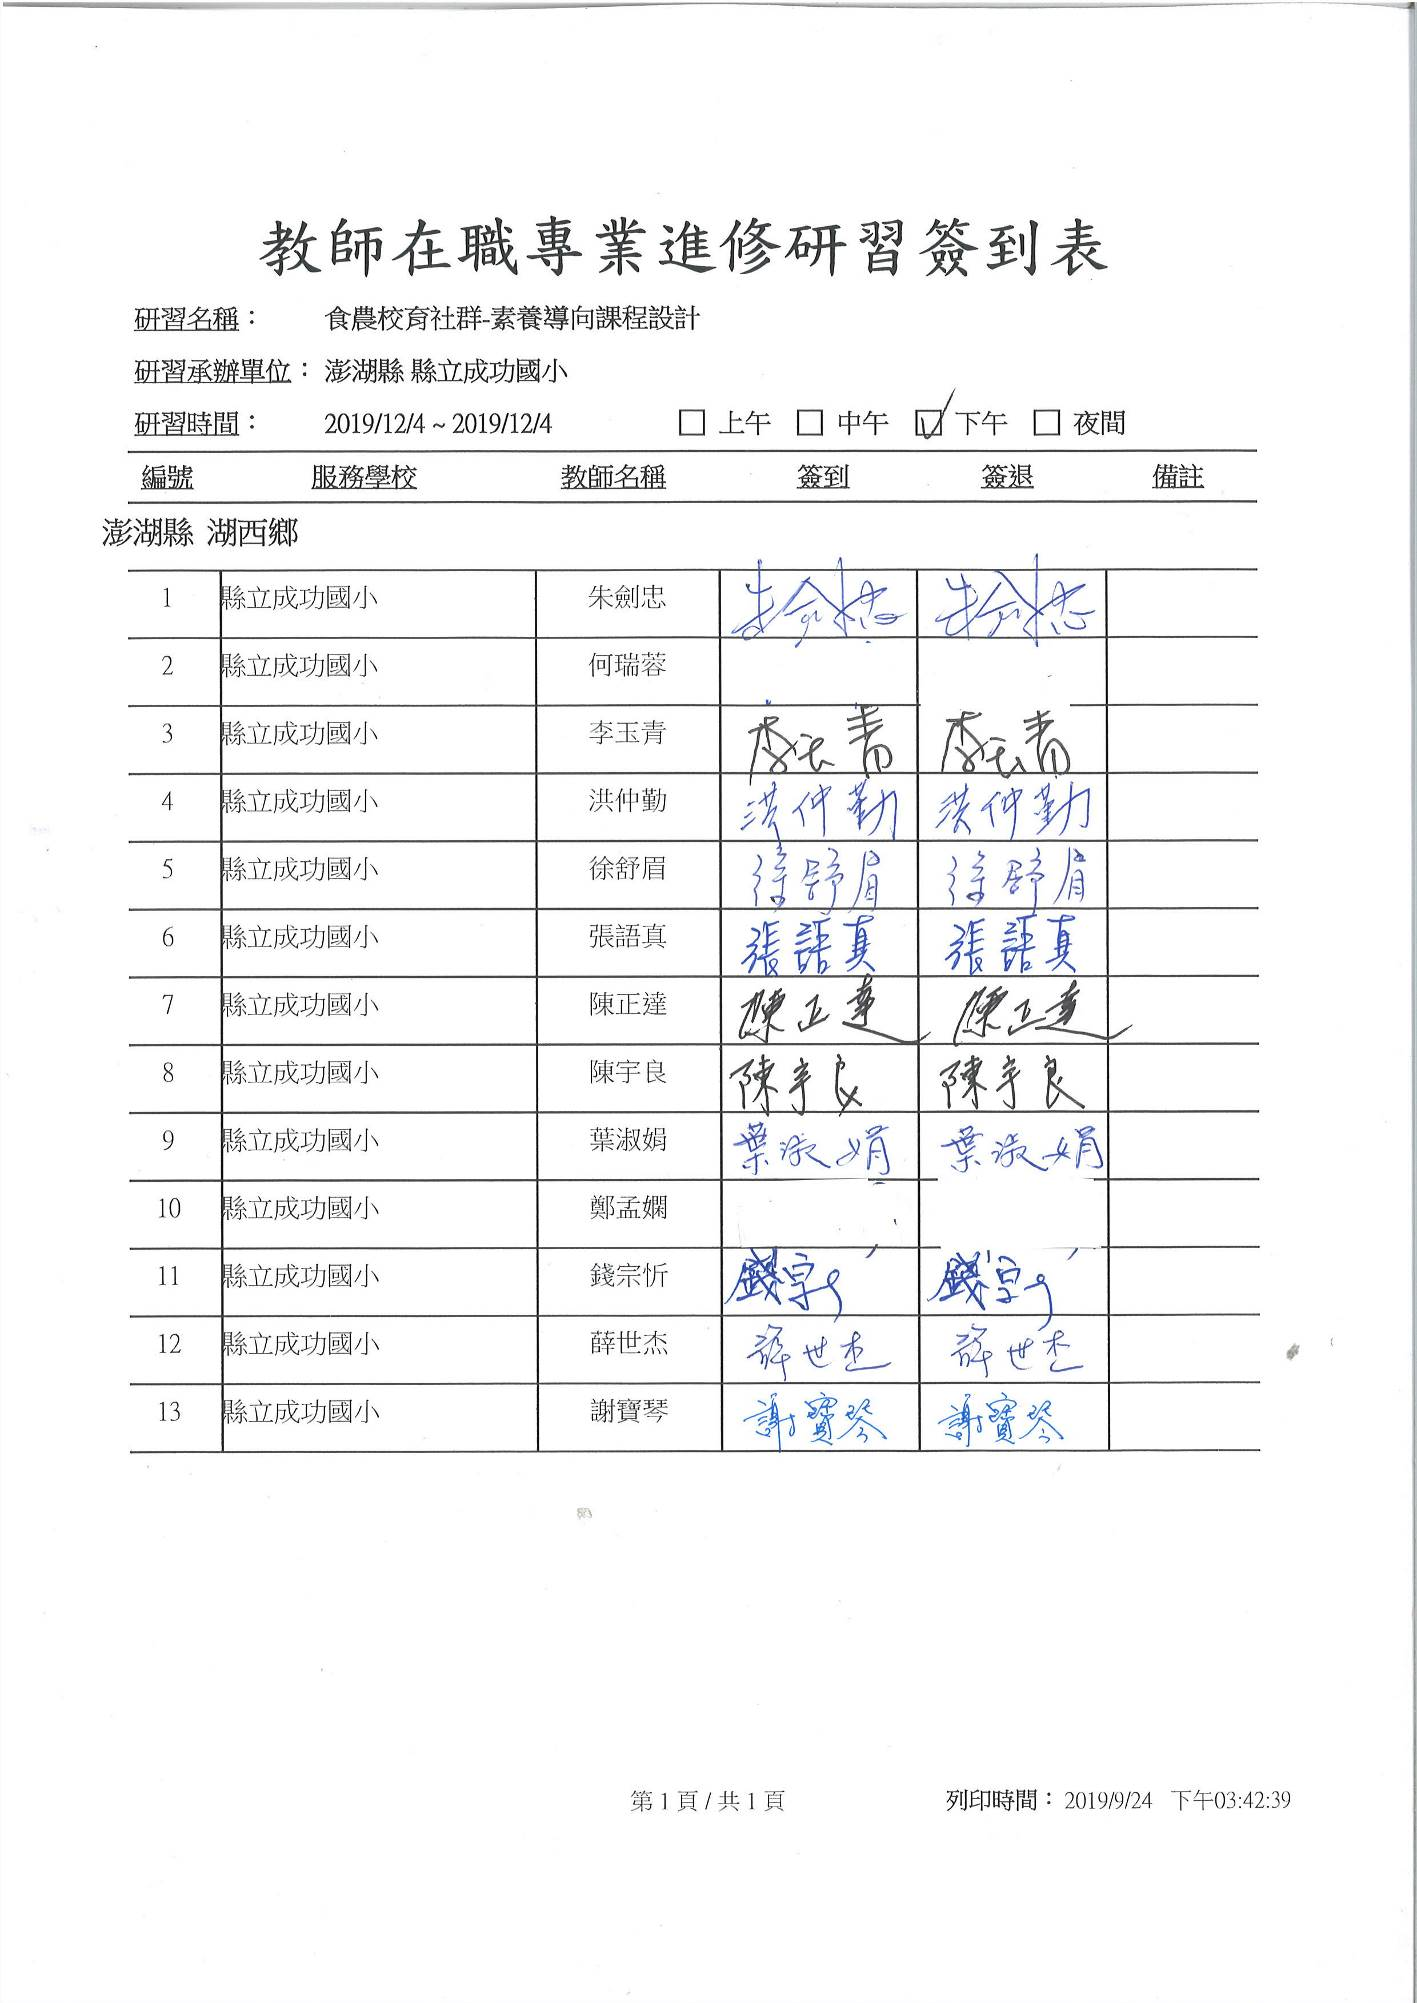 教師在職專業進修研習簽到表
研習名稱： 食農校育社群-素養導向課程設計
研習承辦單位： 澎湖縣 縣立成功國小
研習時間： 2019/12/4 ~ 2019/12/4 □ 上午 □ 中午 ☑ 下午 □ 夜間
編號 服務學校 教師名稱 簽到 簽退 備註
澎湖縣 湖西鄉
1 縣立成功國小 朱劍忠 朱劍忠 朱劍忠
2 縣立成功國小 何瑞蓉
3 縣立成功國小 李玉青 李玉青 李玉青
4 縣立成功國小 洪仲勤 洪仲勤 洪仲勤
5 縣立成功國小 徐舒眉 徐舒眉 徐舒眉
6 縣立成功國小 張語真 張語真 張語真
7 縣立成功國小 陳正達 陳正達 陳正達
8 縣立成功國小 陳宇良 陳宇良 陳宇良
9 縣立成功國小 葉淑娟 葉淑娟 葉淑娟
10 縣立成功國小 鄭孟嫻
11 縣立成功國小 錢宗忻 錢宗忻 錢宗忻
12 縣立成功國小 薛世杰 薛世杰 薛世杰
13 縣立成功國小 謝寶琴 謝寶琴 謝寶琴
第 1 頁 / 共 1 頁 列印時間： 2019/9/24 下午03:42:39